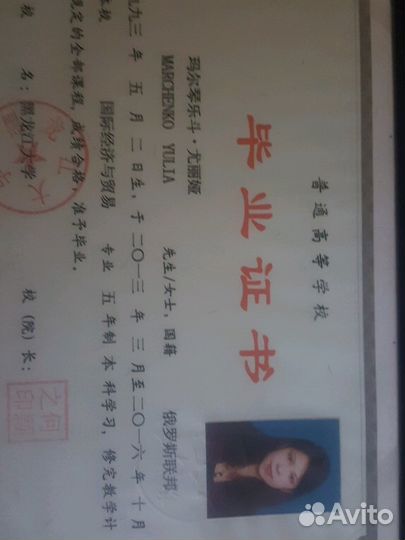 普通高等学校
毕业证书
玛尔琴乐斗·尤丽娅
MARCHENKO YULIA 先生/女士,国籍 俄罗斯联邦
九三 年 五 月 二 日生,于 二〇一三 年 三 月至二〇一六 年 十 月
本校 国际经济与贸易 专业 五 年制 本 科学习,修完教学计
规定的全部课程,成绩合格,准予毕业。
校 名:黑龙江大学 校(院)长:
何新
之印
Avito